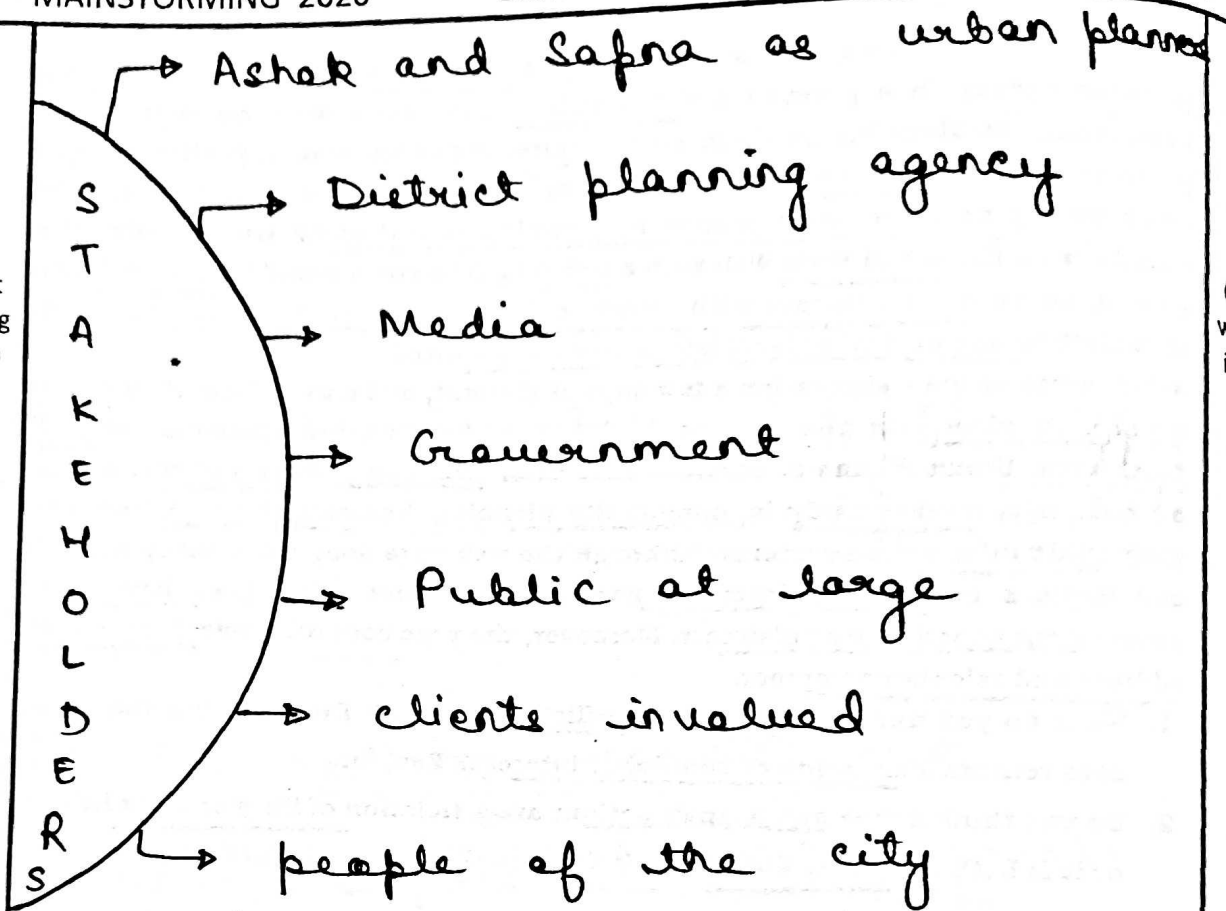 MAINSTORMING 2020
Ashok and Sapna as urban planners
District planning agency
Media
Government
Public at large
clients involved
people of the city
STAKEHOLDERS